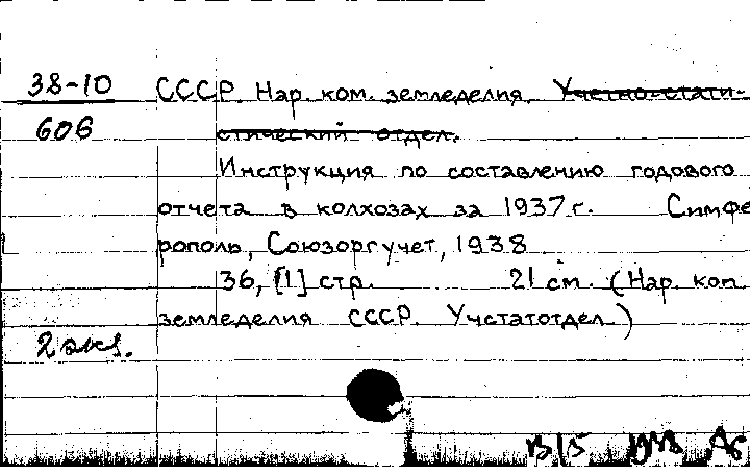 38-10 СССР. Нар. ком. земледелия. Учетно-стати-
606 стический отдел.
Инструкция по составлению годового
отчета в колхозах за 1937 г. Симфе
рополь, Союзоргучет, 1938
36, [1] стр. 21 см. (Нар. ком.
земледелия СССР. Учстатотдел.)
2 экз.